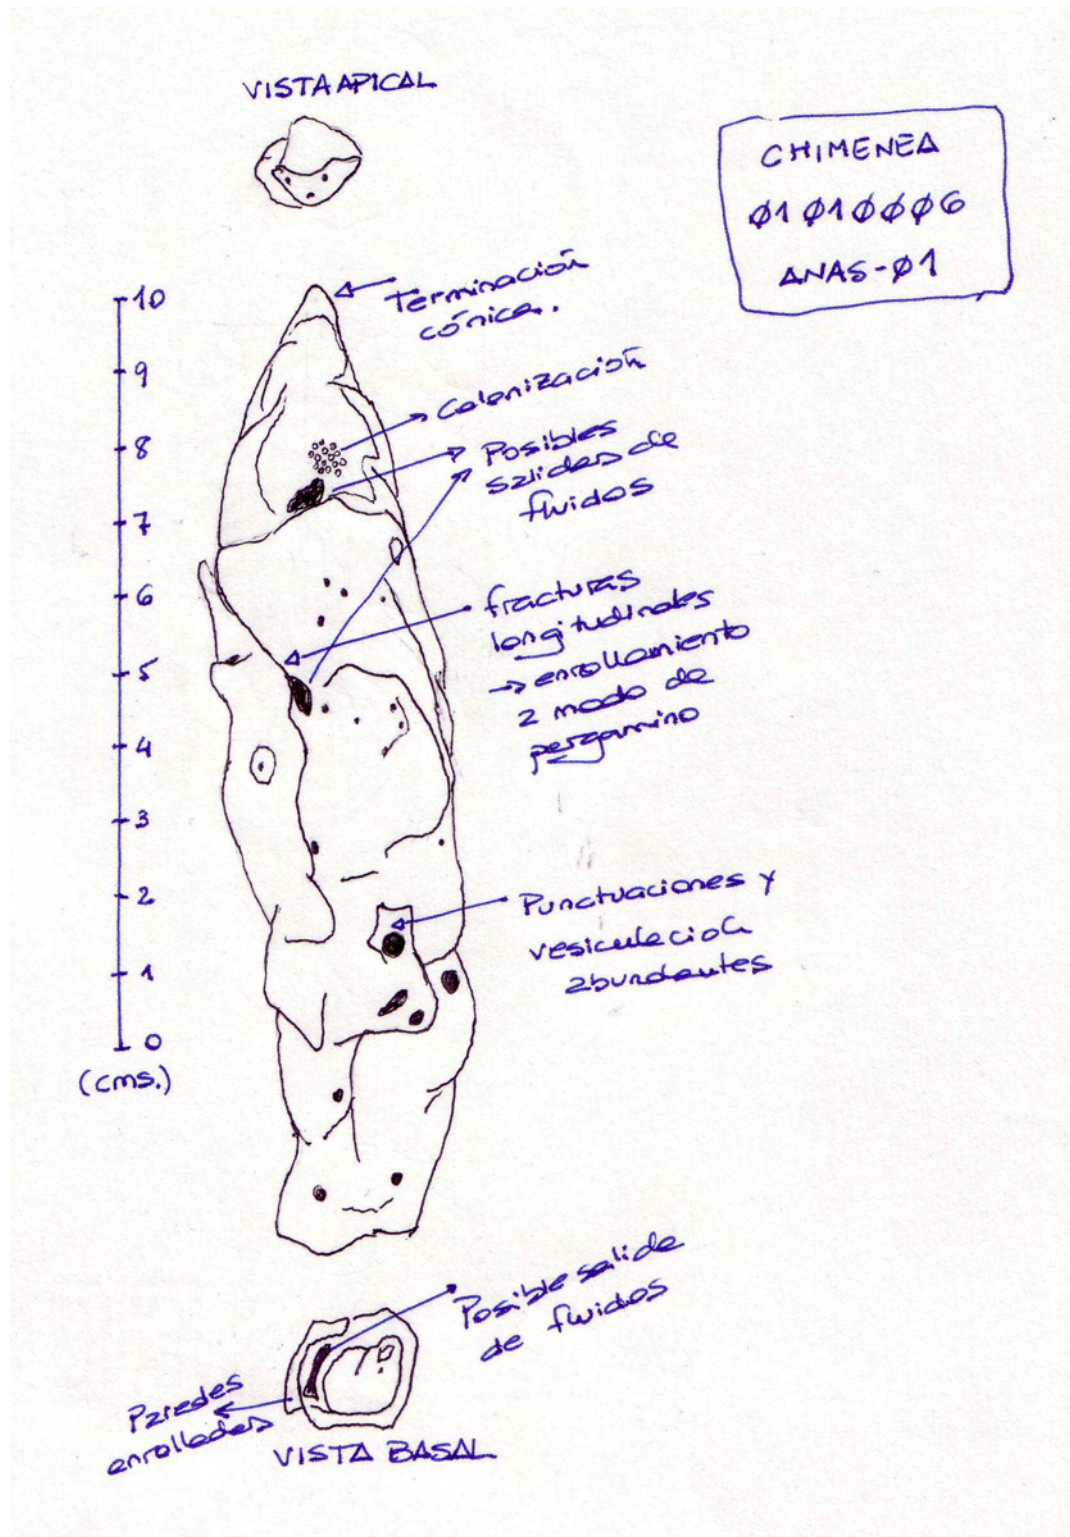 VISTA APICAL
CHIMENEA
Ø1 Ø1ØØØ6
ANAS-Ø1
Terminación
cónica.
Colonización
Posibles
salidas de
fluidos
fracturas
longitudinales
→ enrollamiento
a modo de
pergamino
Punctuaciones y
vesiculación
abundantes
10
9
8
7
6
5
4
3
2
1
0
(cms.)
Posible salida
de fluidos
Paredes
enrolladas
VISTA BASAL